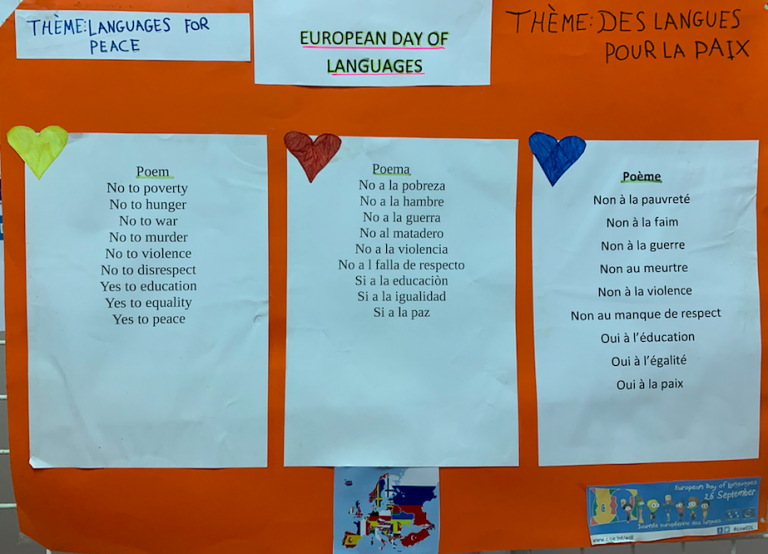 THÈME:LANGUAGES FOR
PEACE
EUROPEAN DAY OF
LANGUAGES
THÈME: DES LANGUES
POUR LA PAIX
Poem
No to poverty
No to hunger
No to war
No to murder
No to violence
No to disrespect
Yes to education
Yes to equality
Yes to peace
Poema
No a la pobreza
No a la hambre
No a la guerra
No al matadero
No a la violencia
No a l falla de respecto
Si a la educaciòn
Si a la igualidad
Si a la paz
Poème
Non à la pauvreté
Non à la faim
Non à la guerre
Non au meurtre
Non à la violence
Non au manque de respect
Oui à l'éducation
Oui à l'égalité
Oui à la paix
European Day of Languages
26 September
Journée européenne des langues